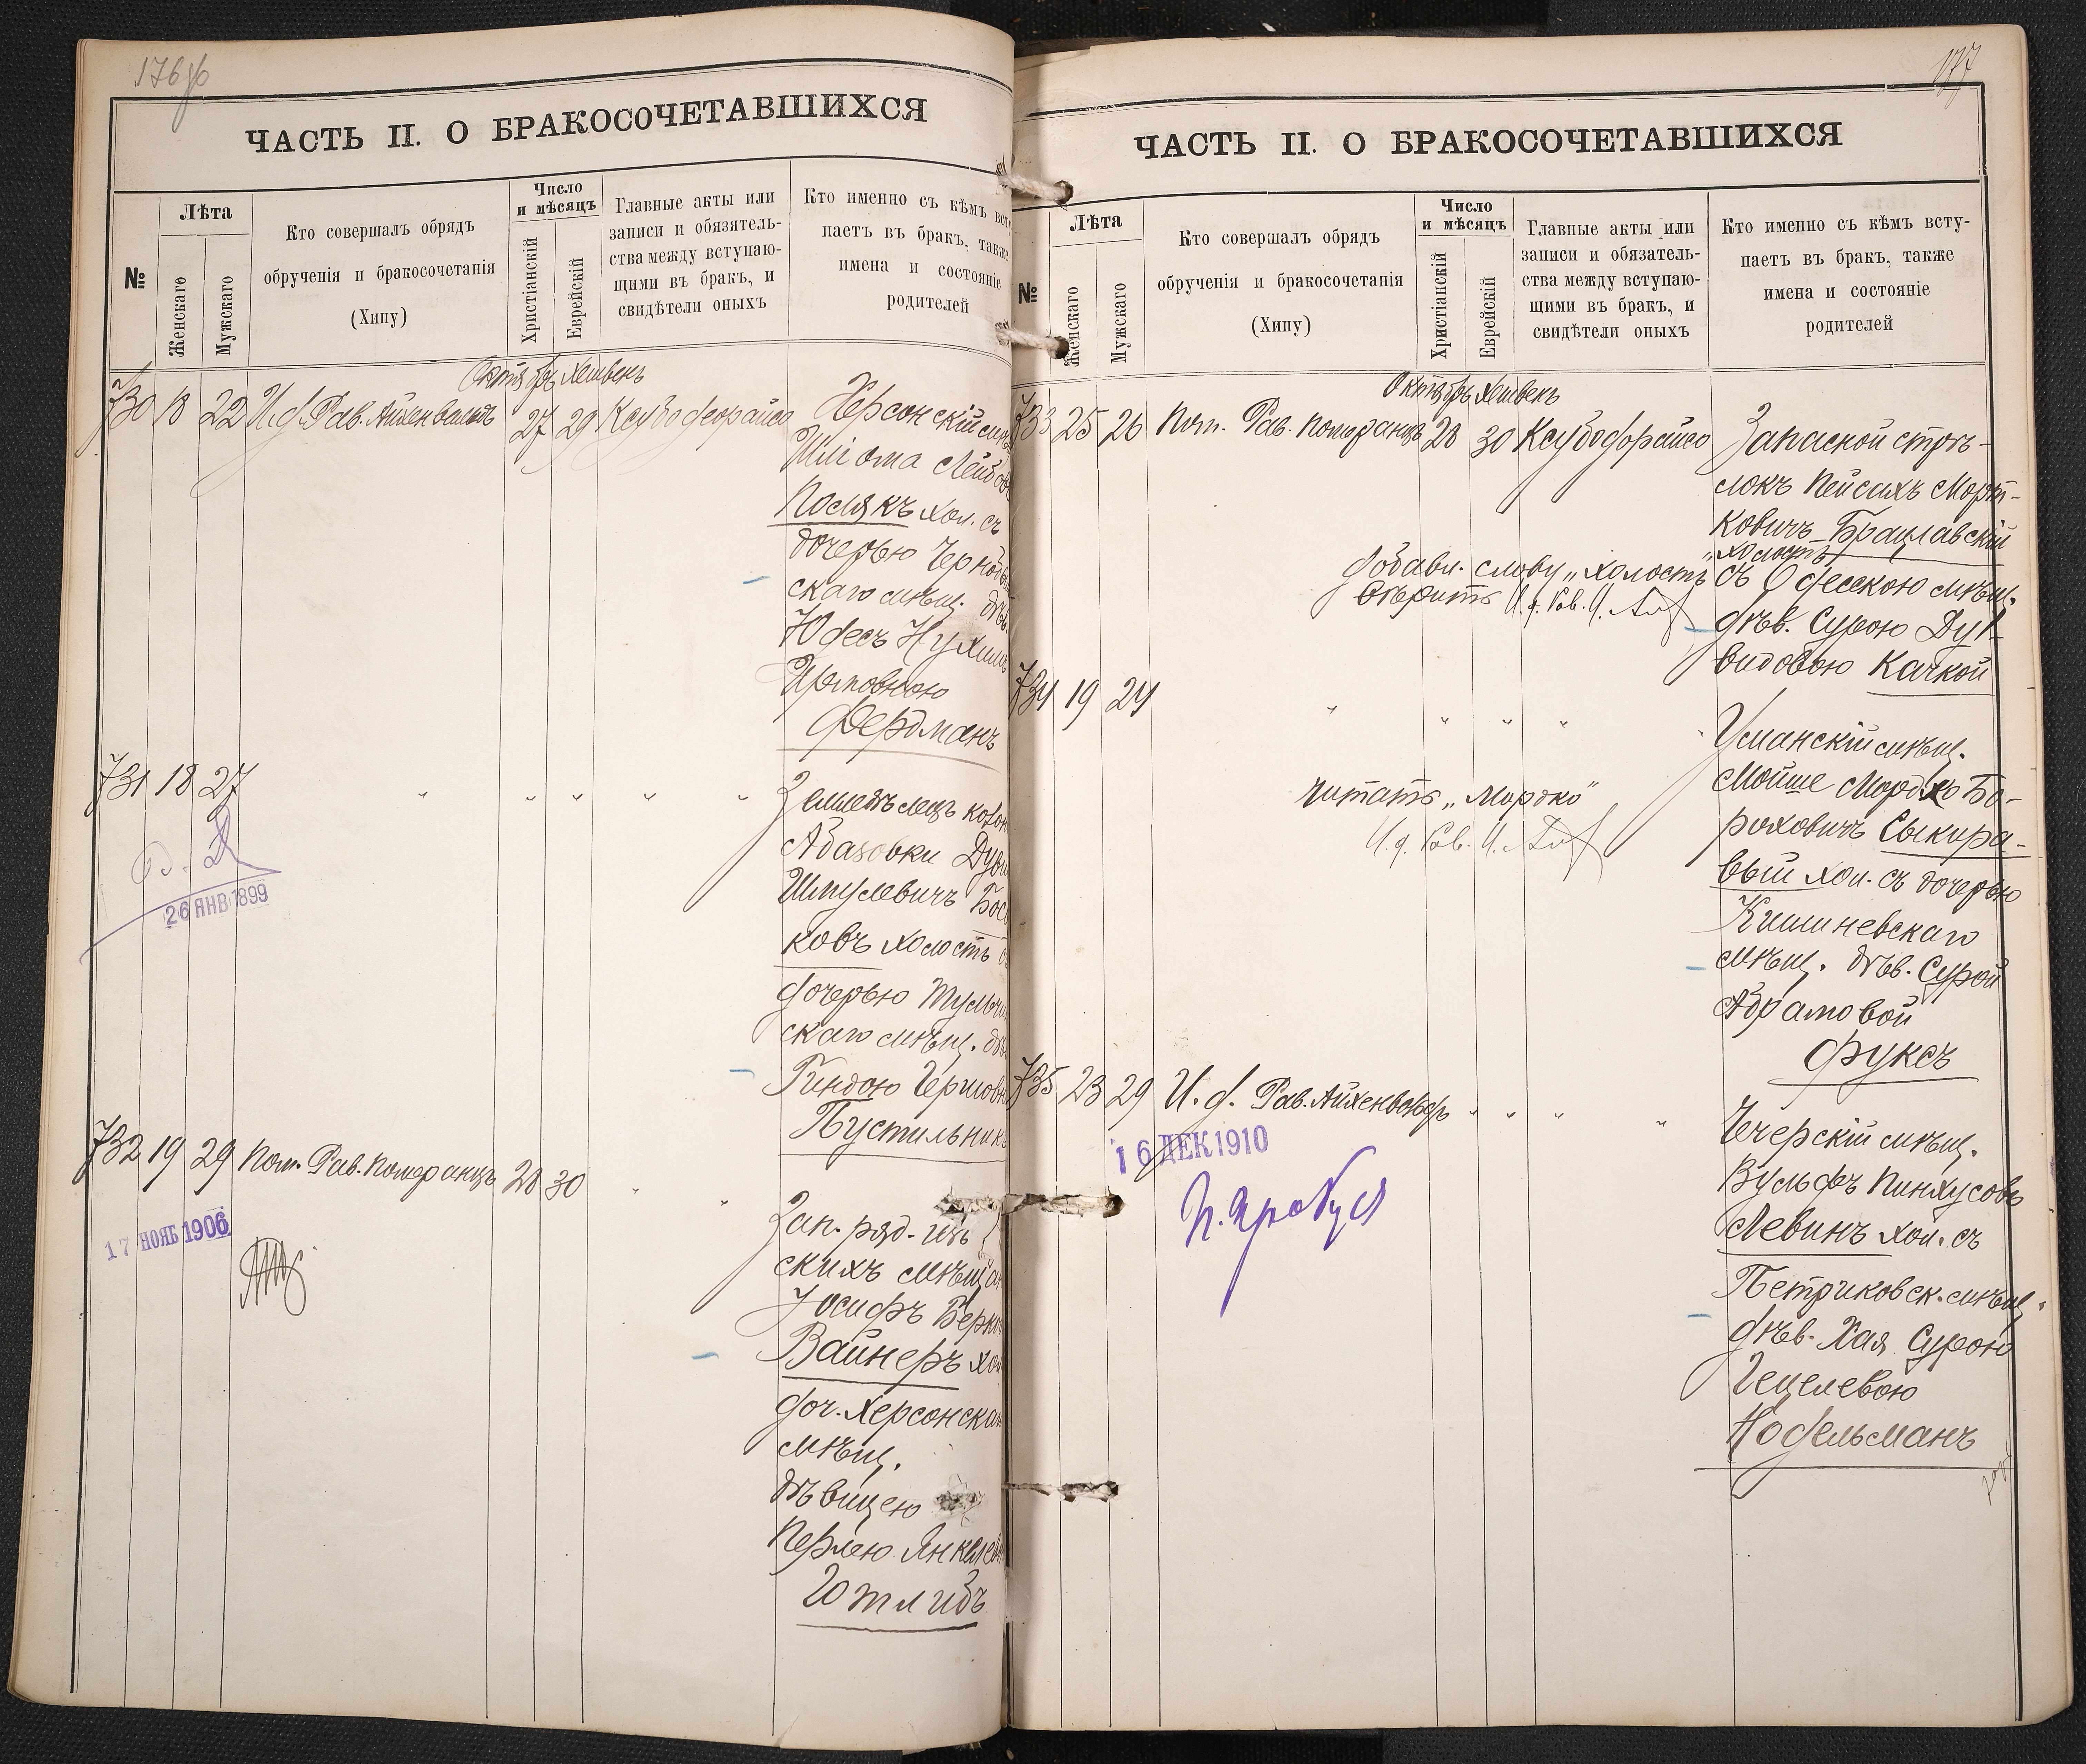 176 об
ЧАСТЬ II. О БРАКОСОЧЕТАВШИХСЯ
№
Лѣта
Женскаго
Мужскаго
Кто совершалъ обрядъ
обрученія и бракосочетанія
(Хипу)
Число
и мѣсяцъ
Христіанскій
Еврейскій
Главные акты или
записи и обязятель-
ства между вступаю-
щими въ бракъ, и
свидѣтели оныхъ
Кто именно съ кѣмъ всту
паетъ въ бракъ, также
имена и состояніе
родителей
Октябрь Хешвенъ
730 18 22 И.д. Рав. Айхенвальдъ 27 29
Херсонскій
Шліома Лейбов
Полякъ хол. съ
дочерью
скаго мѣщ. дѣв.
Юдесъ Нухимъ
Фердманъ
731 18 27 " " " " "
Земледѣлецъ колон
Абазовки
Шмулевичъ
ковъ холостъ
дочерью Тульчи
скаго мѣщ.
Гиндою Гершовн
Пустильник
26 ЯНВ 1899
732 19 29 Пом. Рав. Померанцъ 28 30 " "
Зап. ряд. изъ
скихъ мѣщан
Іосифъ Берко
Вайнеръ хол
доч. Херсонска
мѣщ.
дѣвицею
Перлею Янкелев
Готлибъ
17 НОЯБ 1906
177
ЧАСТЬ II. О БРАКОСОЧЕТАВШИХСЯ
№
Лѣта
Женскаго
Мужскаго
Кто совершалъ обрядъ
обрученія и бракосочетанія
(Хипу)
Число
и мѣсяцъ
Христіанскій
Еврейскій
Главные акты или
записи и обязатель-
ства между вступаю-
щими въ бракъ, и
свидѣтели оныхъ
Кто именно съ кѣмъ всту-
паетъ въ бракъ, также
имена и состояніе
родителей
Октябрь Хешвенъ
733 25 26 Пом. Рав. Померанцъ 28 30
Запасной стрѣ-
локъ Пейсахъ Морт-
ковичъ Брацлавскій
"холостъ"
съ Одесскою мѣщ.
дѣв. Сурою Ду-
видовою Качкой
добавл. слову "холостъ
вѣрить И.д. Рав.
734 19 24 " " " "
Уманскій мѣщ.
Мойше Мордко Бо-
роховичъ Сыкира-
вый хол. съ дочерью
Кишиневскаго
мѣщ. дѣв. Сурой
Абрамовой
Фуксъ
читать "Мордко"
И.д. Рав.
735 23 29 И.д. Рав. Айхенвальдъ " " " "
Чечерскій мѣщ.
Вульфъ Пинхусовъ
Левинъ хол. съ
Петриковск. мѣщ.
дѣв. Хая Сурою
Гецелевою
Нодельманъ
16 ДЕК 1910